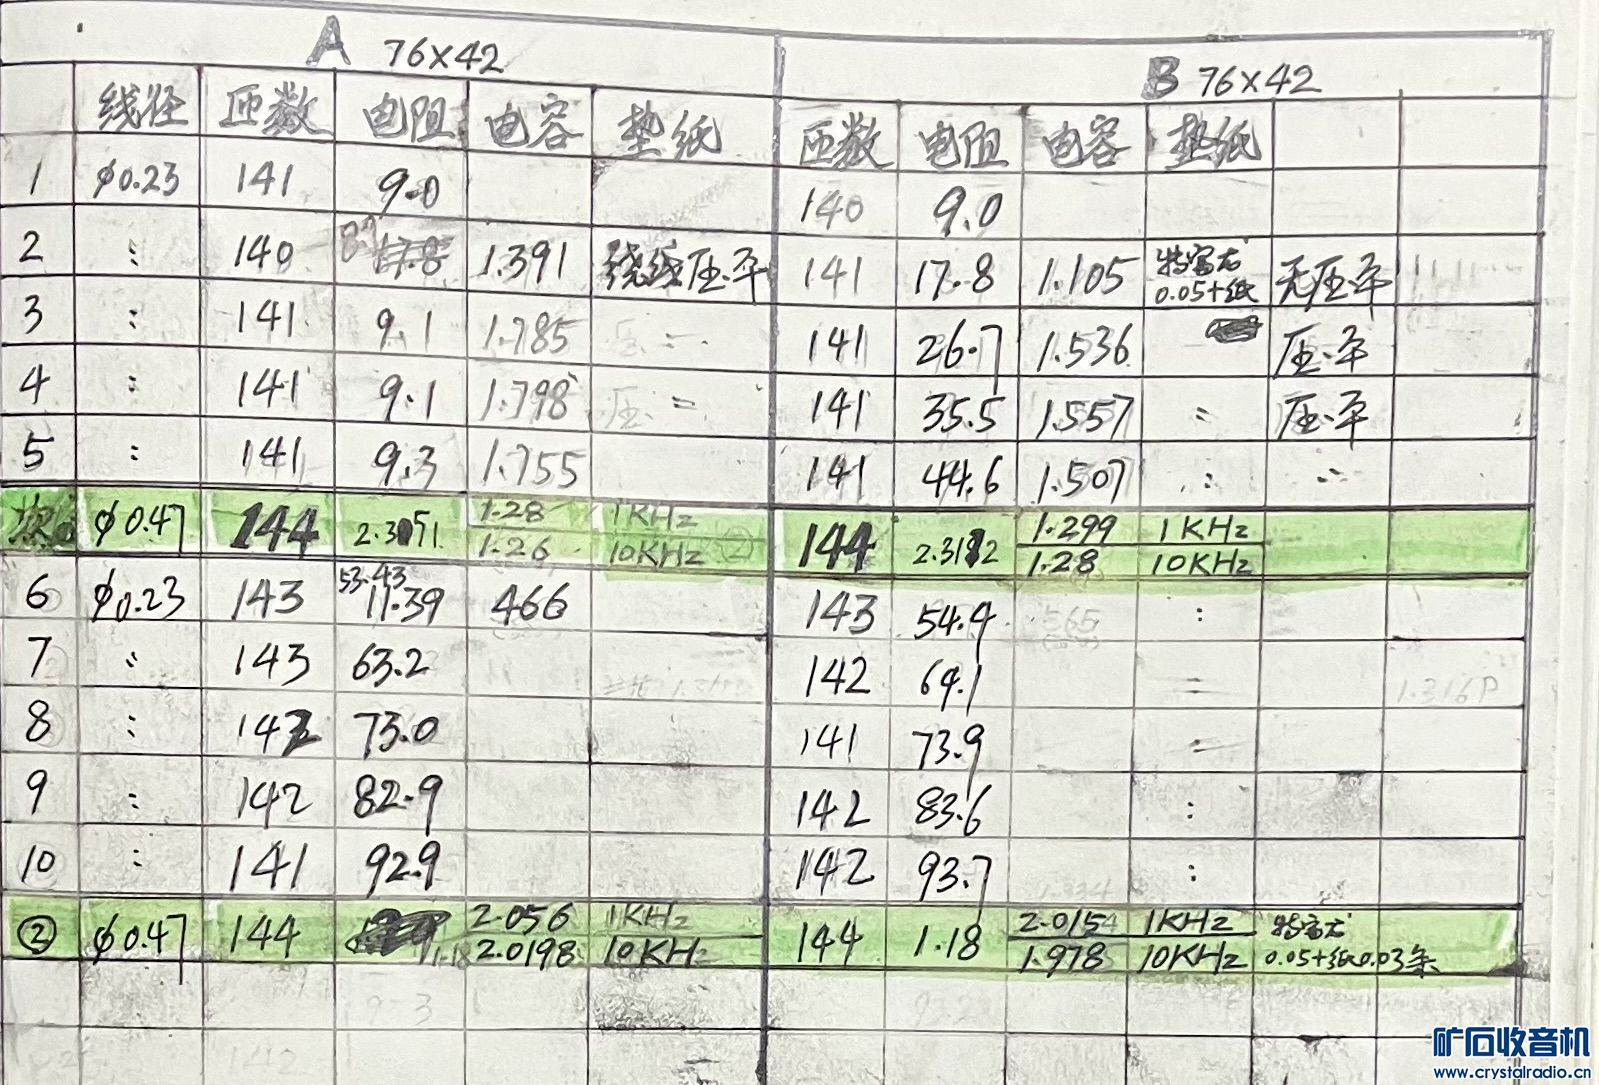 A 76×42 B 76×42
线径 匝数 电阻 电容 垫纸 匝数 电阻 电容 垫纸
1 φ0.23 141 9.0 140 9.0
2 : 140 17.8 1.391 绕线压平 141 17.8 1.105 特富龙 0.05+纸 无压平
3 : 141 9.1 1.785 压 = 141 26.7 1.536 压平
4 : 141 9.1 1.798 压 = 141 35.5 1.557 = 压平
5 : 141 9.3 1.755 141 44.6 1.507 : :
φ0.47 144 1.28 1KHz 144 1.299 1KHz
1.26 10KHz 1.28 10KHz
6 φ0.23 143 53.43 11.39 466 143 54.4 565 :
7 : 143 63.2 142 64.1 = 1.316P
8 : 142 73.0 141 73.9 =
9 : 142 82.9 142 83.6 :
10 : 141 92.9 142 93.7 :
② φ0.47 144 1.18 2.056 1KHz 144 1.18 2.0154 1KHz 特富龙
2.0198 10KHz 1.978 10KHz 0.05+纸0.03条
矿石收音机
www.crystalradio.cn